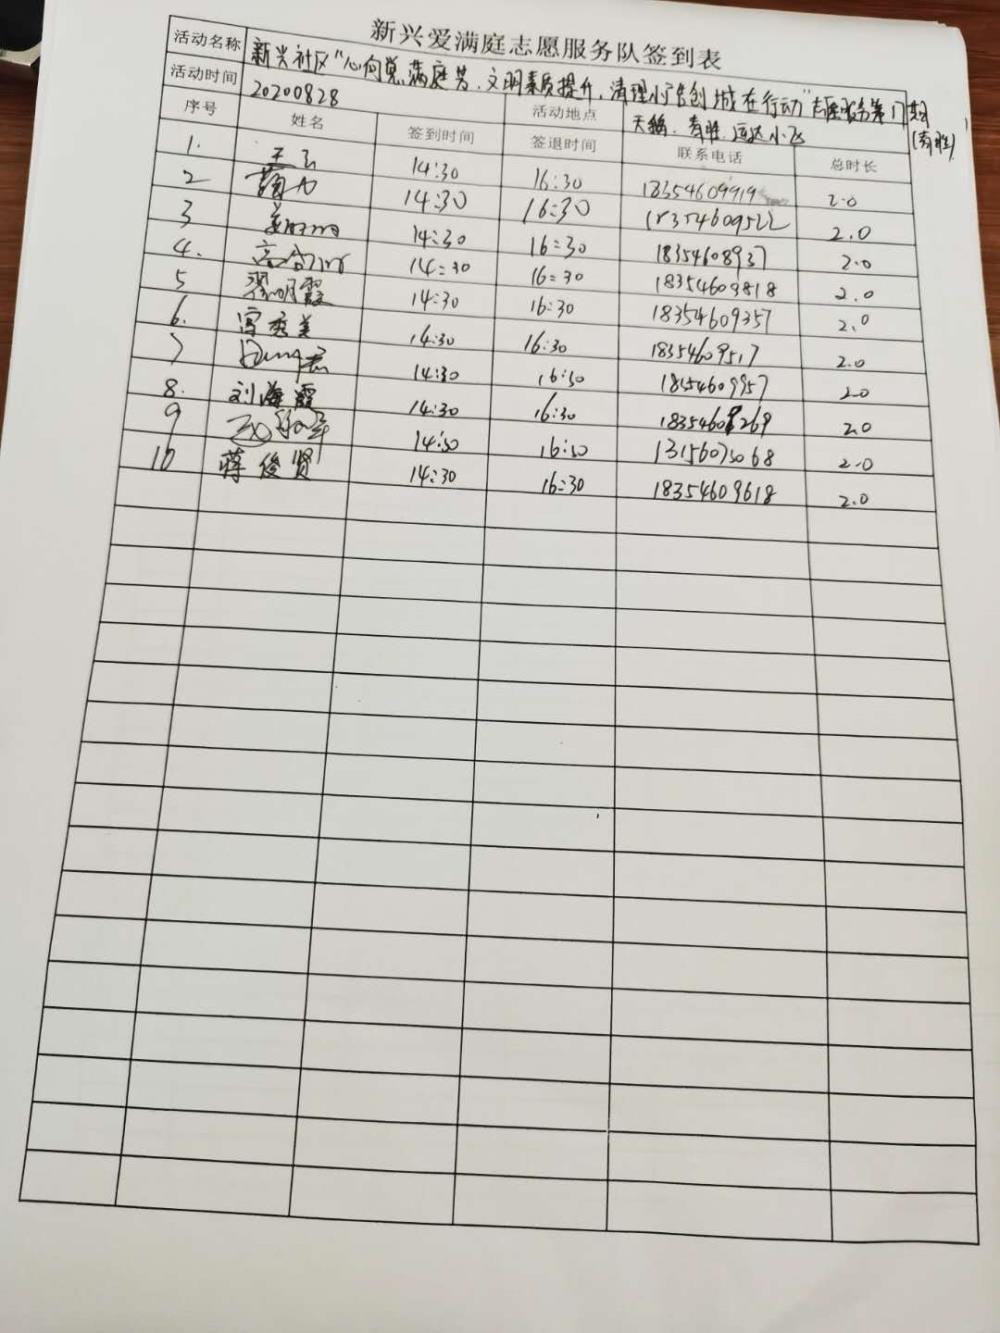 新兴爱满庭志愿服务队签到表
活动名称 新兴社区"心向党 满庭芳、文明素质提升,清理小广告创城在行动"志愿服务第 期 (有胜)
活动时间 20200828 活动地点 天鹅、有胜、运达小区
序号 姓名 签到时间 签退时间 联系电话 总时长
1. 14:30 16:30 18354609919 2.0
2 14:30 16:30 18354609522 2.0
3 14:30 16:30 18354608937 2.0
4. 14:30 16:30 18354609818 2.0
5 明霞 14:30 16:30 18354609357 2.0
6. 宫秀美 14:30 16:30 18354609517 2.0
7 14:30 16:30 18354609957 2.0
8. 刘海霞 14:30 16:30 2.0
9 14:30 16:30 13156075068 2.0
10 蒋俊贤 14:30 16:30 18354609618 2.0